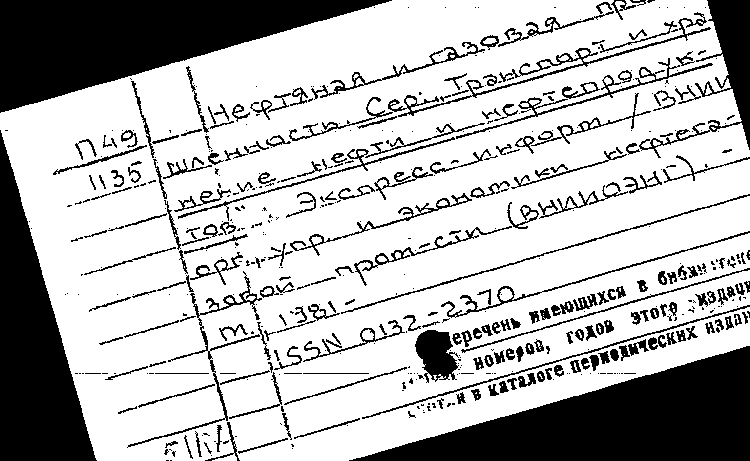 П49 Нефтяная и газовая про
1135 мышленность. Сер. „Транспорт и хра
нение нефти и нефтепродук-
тов". Экспресс-информ. / ВНИИ
орг., упр. и экономики нефтега-
зовой пром-сти (ВНИИОЭНГ). -
М., 1981-
ISSN 0132-2370.
Перечень имеющихся в библиотеке
номеров, годов этого издан
в каталоге периодических издан